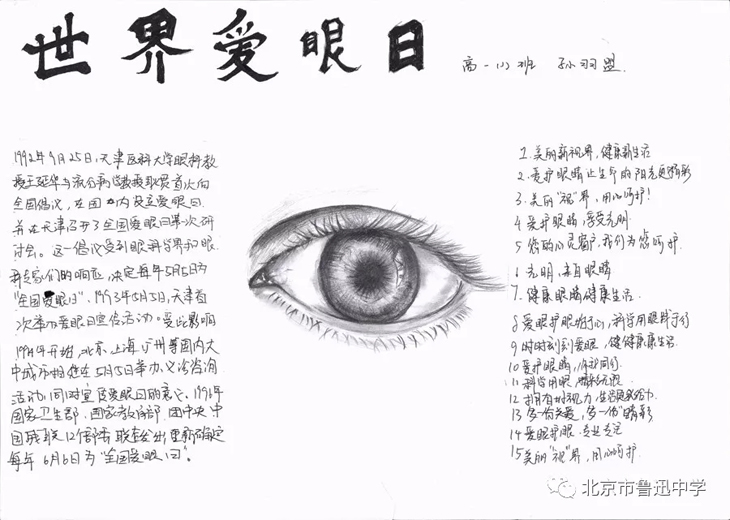 世界爱眼日
高一(1)班 孙羽盟
1992年9月25日,天津医科大学眼科教
授王延华与流行病学教授耿贯一首次向
全国倡议,在国内设立爱眼日,
并在天津召开了全国爱眼日第一次研
讨会。这一倡议受到眼科学界和眼
科专家们的响应,决定每年5月5日为
"全国爱眼日"。1993年5月5日,天津首
次举办爱眼日宣传活动。受此影响
1994年开始,北京,上海,广州等国内大
中城市相继在5月5日举办义诊咨询
活动,同时宣传爱眼日的意义。1996年
国家卫生部,国家教育部,团中央,中
国残联12个部委联合发出重新确定
每年6月6日为"全国爱眼日"。
1.美丽新视界,健康新生活
2.爱护眼睛让生命的阳光更精彩
3.美丽"视"界,用心呵护!
4.爱护眼睛,享受光明.
5.您的心灵窗户,我们为您呵护.
6.光明,来自眼睛
7.健康眼睛健康生活.
8.爱眼护眼始于心,科学用眼践于行
9.时时刻刻爱眼,健健康康生活.
10.爱护眼睛,你我同行.
11.科学用眼,精彩无限.
12.拥有好视力,生活更给力.
13.多一份关爱,多一份"睛"彩
14.爱眼护眼.专业专注
15.美丽"视"界,用心呵护.
北京市鲁迅中学